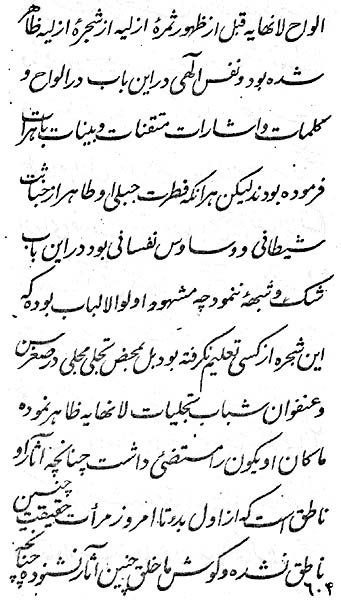 الواح لانهایه قبل از ظهور ثمرهٔ ازلیه از شجرهٔ ازلیه ظاهر
شده بود و نفس آلهی در این باب در الواح و
کلمات و اشارات متقنات و بینات باهرات
فرموده بودند لیکن هر آنکه فطرت جبلی او طاهر از خباثت
شیطانی و وساوس نفسانی بود در این باب
شک و شبههٔ ننمود چه مشهود اولوا الالباب بوده که
این شجره از کسی تعلیم نگرفته بود بل بمحض تجلی مجلی در صغر سن
و عنفوان شباب تجلیات لانهایه ظاهر نموده
ما کان او یکون را مستضئ داشت چنانچه آثار او
ناطق است که از اول بدء تا امروز مرآت حقیقت چنین
ناطق نشده و گوش ما خلق چنین آثار نشنوده چنانچه
۶۰۴